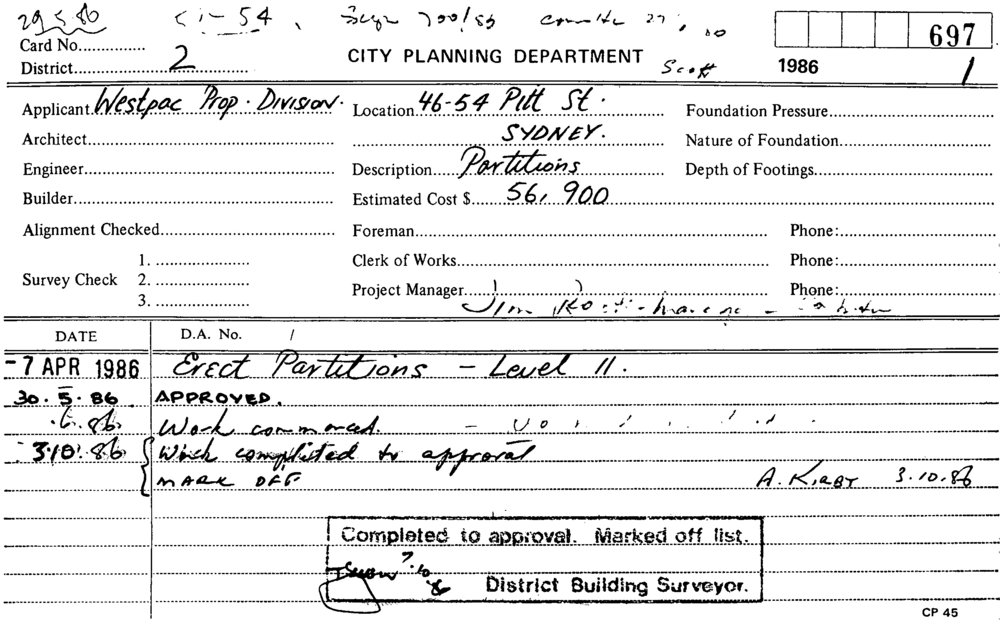 29.5.86 54, 700/86
Card No.............. 697
District.............. 2 CITY PLANNING DEPARTMENT Scott 1986 1
Applicant Westpac Prop. Division. Location 46-54 Pitt St. Foundation Pressure
Architect SYDNEY. Nature of Foundation
Engineer Description Partitions Depth of Footings
Builder Estimated Cost $ 56,900
Alignment Checked Foreman Phone:
1. Clerk of Works Phone:
Survey Check 2. Project Manager Phone:
3. Jim
DATE D.A. No. /
-7 APR 1986 Erect Partitions - Level 11.
30.5.86 APPROVED.
.6.86 Work commenced. -
3.10.86 Work completed to approval
MARK OFF A. KIRBY 3.10.86
Completed to approval. Marked off list.
7.10.86 District Building Surveyor.
CP 45